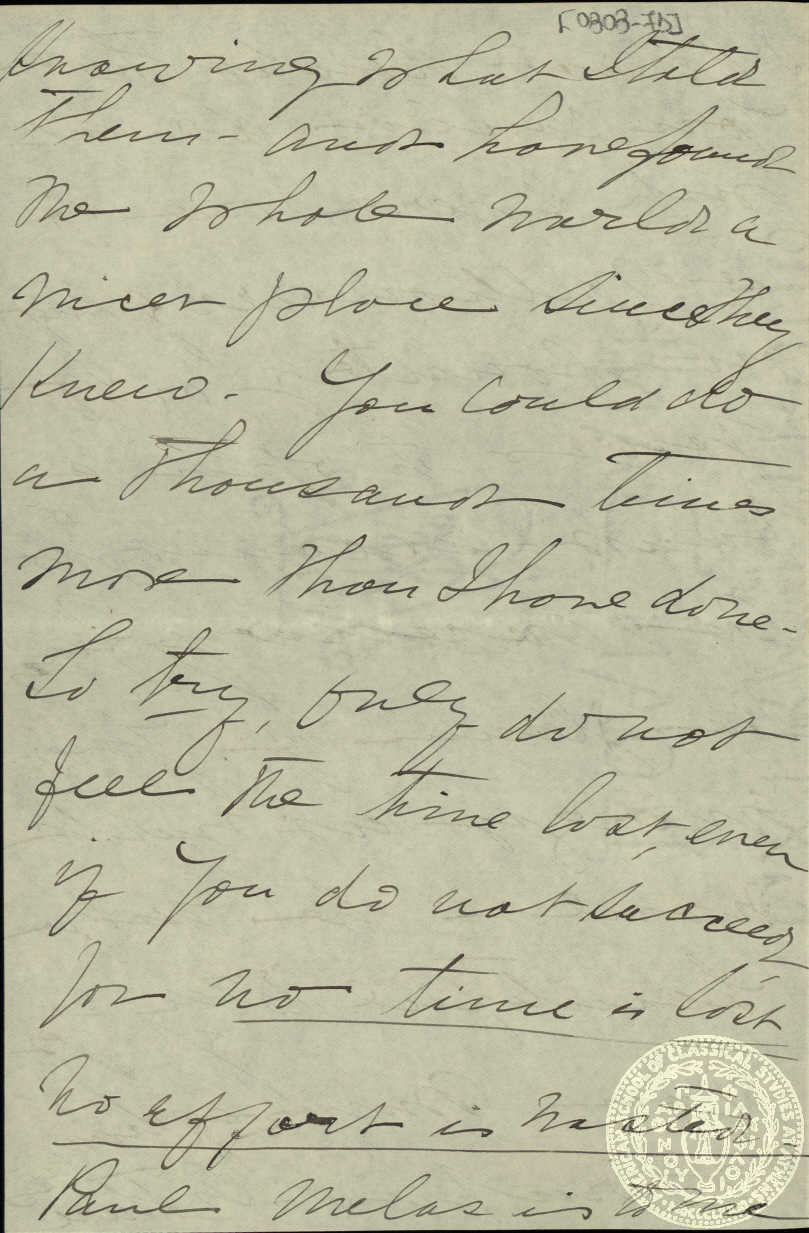 [0303-75]
Knowing what I told
them - and have found
the whole world a
nicer place since they
knew. You could do
a thousand times
more than I have done -
So try, only do not
feel the time lost, even
if you do not succeed,
for no time is lost
no effort is wasted
Paul Melas is to me
AMERICAN SCHOOL OF CLASSICAL STUDIES AT ATHENS